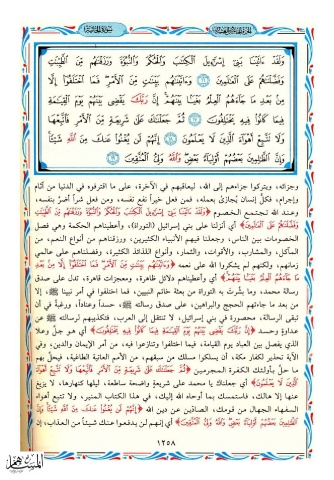 الجزء الخامس والعشرون
سورة الجاثية
وَلَقَدْ ءَاتَيْنَا بَنِىٓ إِسْرَٰٓءِيلَ ٱلْكِتَٰبَ وَٱلْحُكْمَ وَٱلنُّبُوَّةَ وَرَزَقْنَٰهُم مِّنَ ٱلطَّيِّبَٰتِ
وَفَضَّلْنَٰهُمْ عَلَى ٱلْعَٰلَمِينَ ١٦ وَءَاتَيْنَٰهُم بَيِّنَٰتٍ مِّنَ ٱلْأَمْرِ فَمَا ٱخْتَلَفُوٓا۟ إِلَّا
مِنۢ بَعْدِ مَا جَآءَهُمُ ٱلْعِلْمُ بَغْيًۢا بَيْنَهُمْ إِنَّ رَبَّكَ يَقْضِى بَيْنَهُمْ يَوْمَ ٱلْقِيَٰمَةِ
فِيمَا كَانُوا۟ فِيهِ يَخْتَلِفُونَ ١٧ ثُمَّ جَعَلْنَٰكَ عَلَىٰ شَرِيعَةٍ مِّنَ ٱلْأَمْرِ فَٱتَّبِعْهَا
وَلَا تَتَّبِعْ أَهْوَآءَ ٱلَّذِينَ لَا يَعْلَمُونَ ١٨ إِنَّهُمْ لَن يُغْنُوا۟ عَنكَ مِنَ ٱللَّهِ شَيْـًٔا
وَإِنَّ ٱلظَّٰلِمِينَ بَعْضُهُمْ أَوْلِيَآءُ بَعْضٍ وَٱللَّهُ وَلِىُّ ٱلْمُتَّقِينَ ١٩
وجزائه، ويتركوا جزاءهم إلى الله، ليعاقبهم في الآخرة، على ما اقترفوه في الدنيا من آثام
وإجرام، فكلُّ إنسان يُجازى بعمله، فمن فعل خيراً نفع نفسه، ومن فعل شراً أضرَّ بنفسه،
وعند الله تجتمع الخصوم ﴿وَلَقَدْ ءَاتَيْنَا بَنِي إِسْرَائِيلَ الْكِتَابَ وَالْحُكْمَ وَالنُّبُوَّةَ وَرَزَقْنَاهُم مِّنَ الطَّيِّبَاتِ
وَفَضَّلْنَاهُمْ عَلَى الْعَالَمِينَ﴾ أي أنزلنا على بني إسرائيل (التوراة)، وأعطيناهم الحكمة وهي فصل
الخصومات بين الناس، وجعلنا فيهم الأنبياء الكثيرين، ورزقناهم من أنواع النعم، من
المآكل، والمشارب، والأقوات، والثمار، وأنواع اللذائذ الكثيرة، وفضلناهم على عالمي
زمانهم، ولكنهم لم يشكروا الله على نعمه ﴿وَءَاتَيْنَاهُم بَيِّنَاتٍ مِّنَ الْأَمْرِ فَمَا اخْتَلَفُوا إِلَّا مِنْ بَعْدِ
مَا جَاءَهُمُ الْعِلْمُ بَغْيًا بَيْنَهُمْ﴾ أي وأعطيناهم دلائل ظاهرة، ومعجزات قاهرة، تدل على صدق
رسالة محمد، وما بشَّرت به التوراة من بعثة خاتم النبيين، فما اختلفوا في أمر نبينا ﷺ إلا
من بعد ما جاءتهم الحجج والبراهين، على صدق رسالته ﷺ حسداً وعناداً، ورغبةً في أن
تبقى الرسالة، محصورة في بني إسرائيل، لا تنتقل إلى العرب، فتكذيبهم لرسالته ﷺ عن
عداوة وحسد ﴿إِنَّ رَبَّكَ يَقْضِي بَيْنَهُمْ يَوْمَ الْقِيَامَةِ فِيمَا كَانُوا فِيهِ يَخْتَلِفُونَ﴾ أي هو جل وعلا
الذي يفصل بين العباد يوم القيامة، فيما اختلفوا وتنازعوا فيه، من أمر الإيمان والدين، وفي
الآية تحذير لكفار مكة، أن يسلكوا مسلك من سبقهم، من الأمم العاتية الطاغية، فيحلَّ بهم
ما حلَّ بأولئك الكفرة المجرمين ﴿ثُمَّ جَعَلْنَاكَ عَلَى شَرِيعَةٍ مِّنَ الْأَمْرِ فَاتَّبِعْهَا وَلَا تَتَّبِعْ أَهْوَاءَ
الَّذِينَ لَا يَعْلَمُونَ﴾ أي جعلناك يا محمد على شريعةٍ واضحةٍ ساطعة، ليلها كنهارها، لا يزيغ
عنها إلا هالك، فاستمسك بما أوحاه الله إليك، في هذا الكتاب المنير، ولا تتبع أهواء
السفهاء الجهال من قومك، الصادّين عن دين الله ﴿إِنَّهُمْ لَن يُغْنُوا عَنكَ مِنَ اللَّهِ شَيْئًا وَإِنَّ
الظَّالِمِينَ بَعْضُهُمْ أَوْلِيَاءُ بَعْضٍ وَاللَّهُ وَلِيُّ الْمُتَّقِينَ﴾ أي إنهم لن يدفعوا عنك شيئاً من العذاب، إن
١٢٥٨